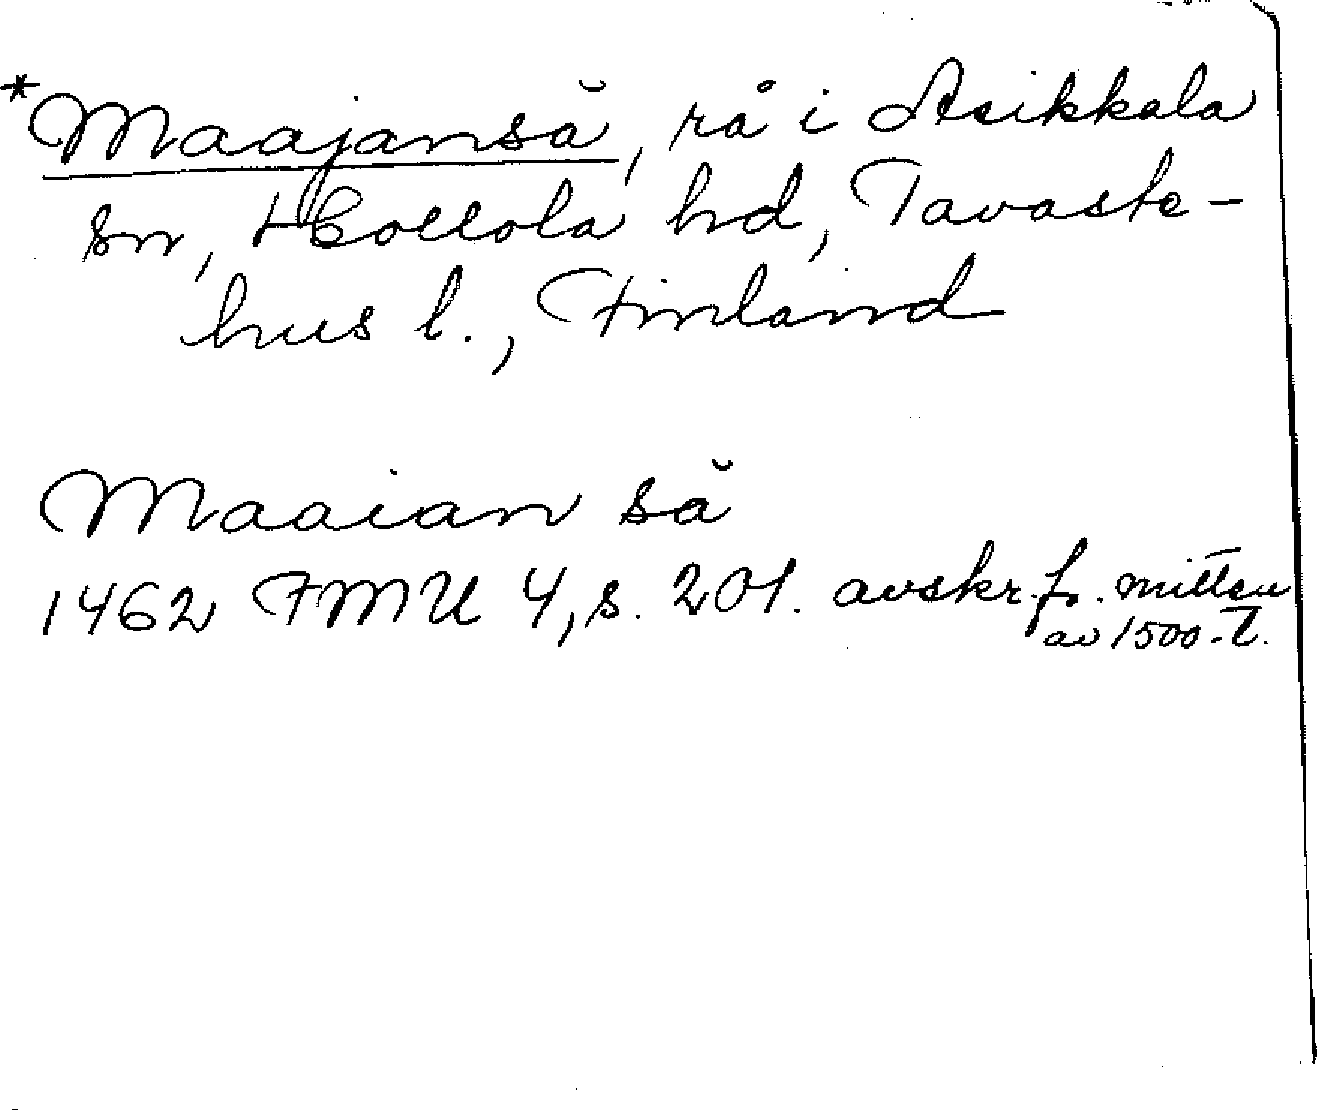 *Maajansă, rå i Asikkala
sn, Hollola hd, Tavaste-
hus l., Finland
Maaian să
1462 FMU 4, s. 201. avskr. fr. mitten
av 1500-t.